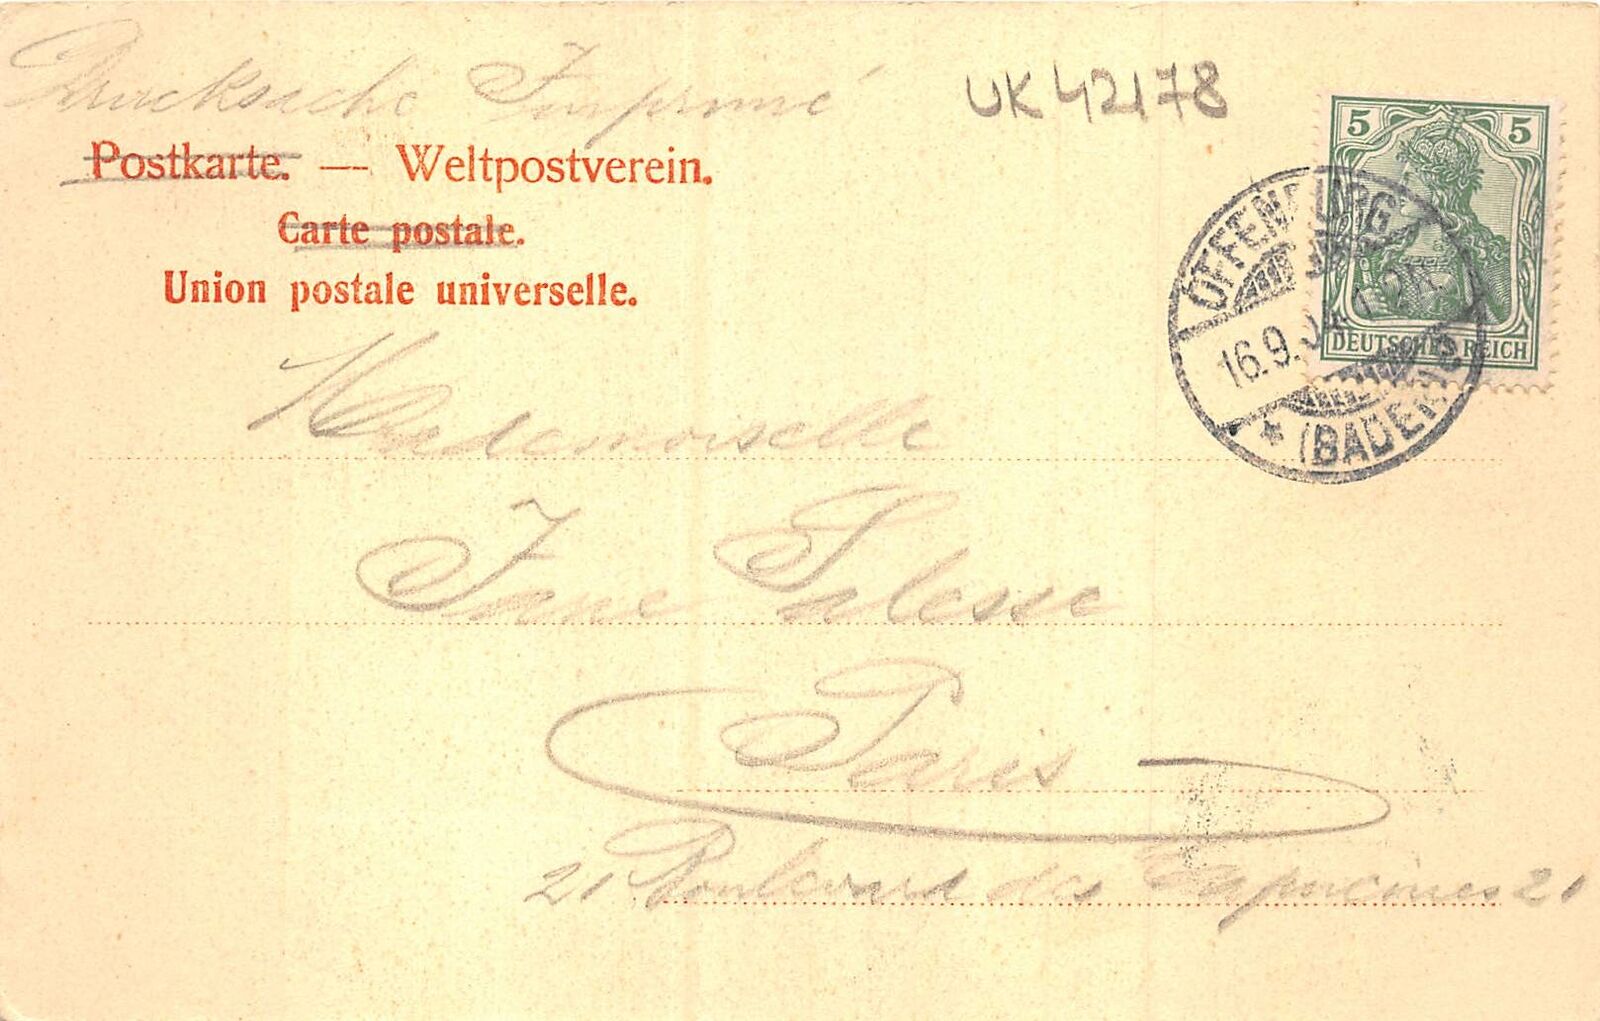 Drucksache Imprimé
UK 42178
Postkarte. — Weltpostverein.
Carte postale.
Union postale universelle.
5 5
DEUTSCHES REICH
OFFENBURG
16.9.
* (BADEN)
Mademoiselle
Jane Palesse
Paris
21 Boulevard des Capucines 21